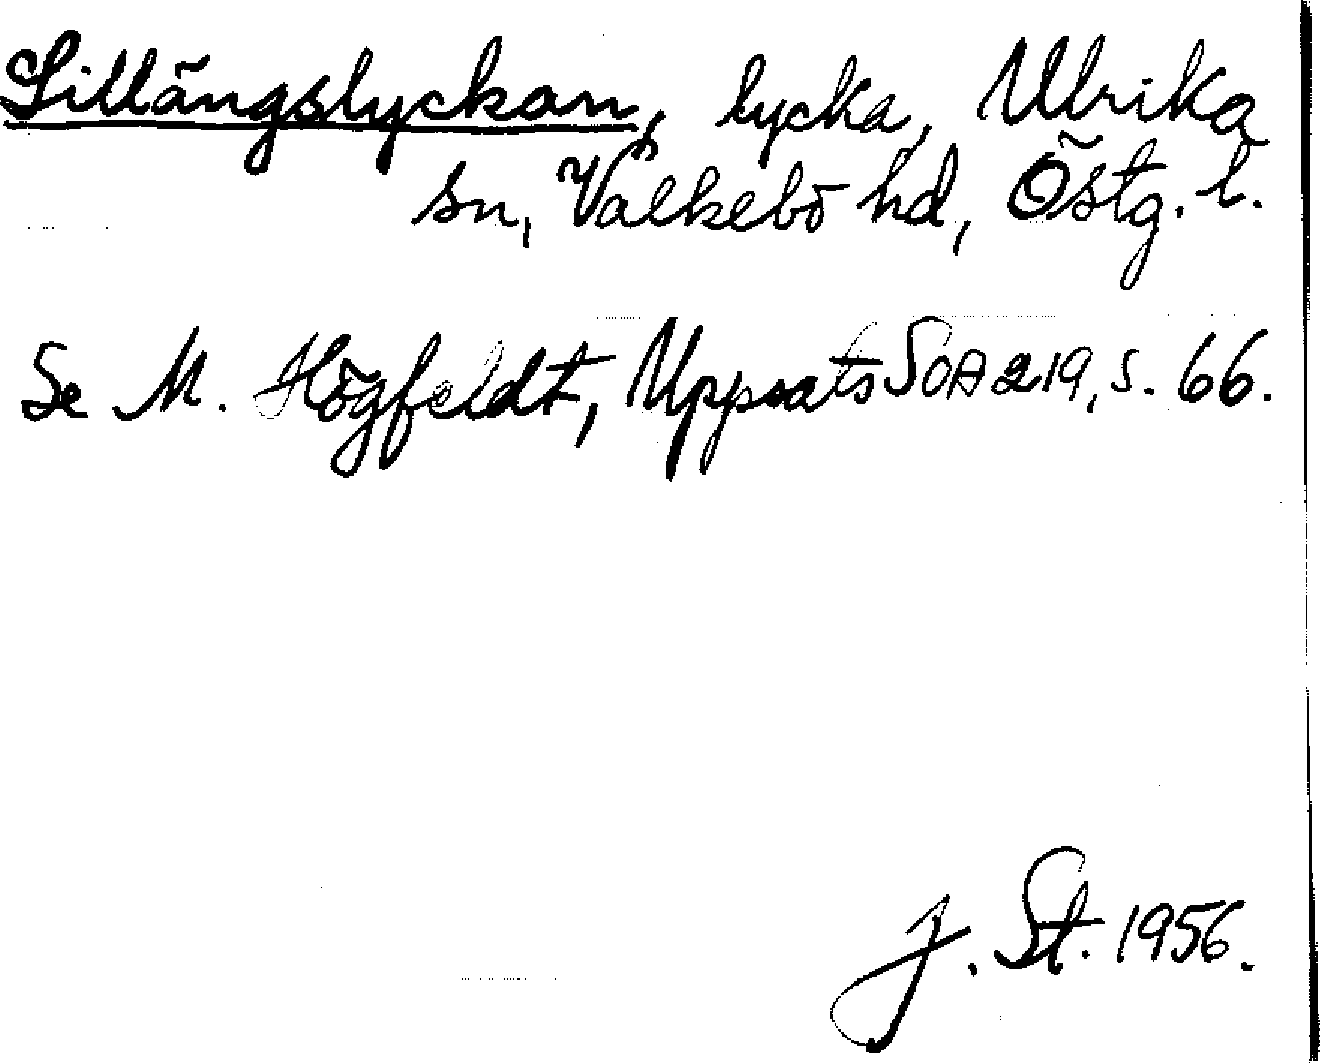 Lillängslyckan, lycka, Ulrika
sn, Valkebo hd, Östg. l.
Se M. Högfeldt, Uppsats SOA 219, s. 66.
J. St. 1956.